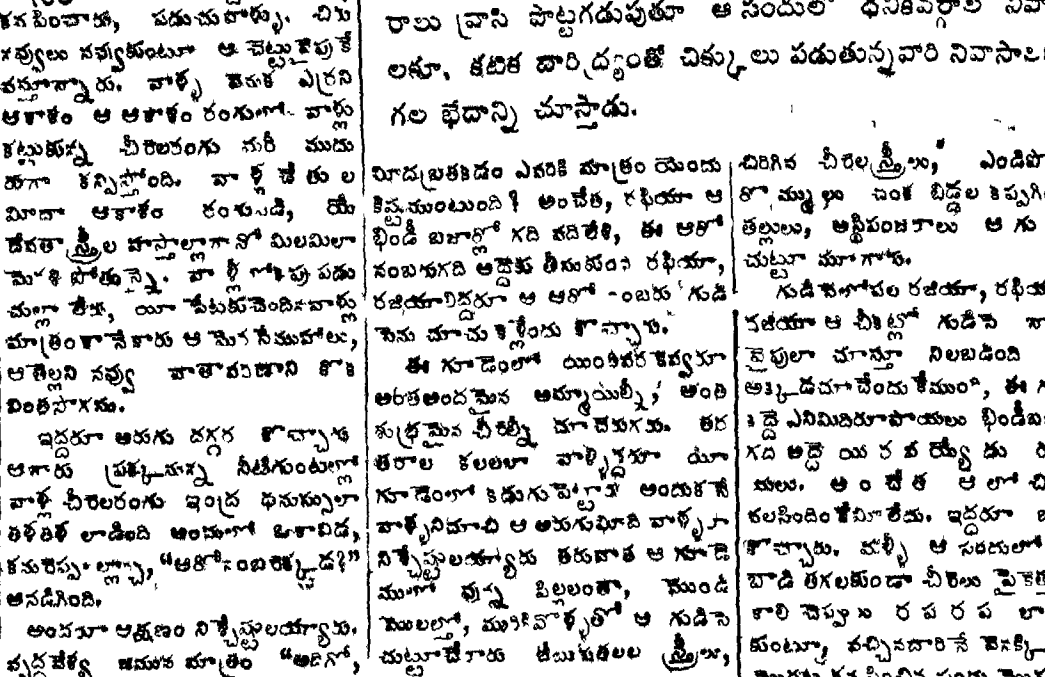 కనిపించారు, పడుచువాళ్ళు. చిరు
నవ్వులు నవ్వుకుంటూ ఆ చెట్టువైపుకే
వస్తూన్నారు. వాళ్ళ వెనుక ఎర్రని
ఆకాశం ఆ ఆకాశం రంగులో వాళ్లు
కట్టుకున్న చీరెలరంగు మరీ ముదు
రుగా కన్పిస్తోంది. వాళ్ల చేతుల
మీదా ఆకాశం రంగుపడి, యే
దేవతా స్త్రీల హస్తాల్లాగానో మిలమిలా
పోతున్నై. పడు
లేరు, యీ పేటకుచెందినవాళ్లు
మాత్రంకానేకారు ఆ
ఆతెల్లని నవ్వు వాతావరణాని కొక
వింతసొగసు.
ఇద్దరూ అరుగు దగ్గర కొచ్చారు
ఆగారు ప్రక్కనున్న నీటిగుంటల్లో
వాళ్ల చీరెలరంగు ఇంద్ర ధనుస్సులా
తళతళ లాడింది అందులో ఒకావిడ,
"ఆరోనంబరెక్కడ?"
అనడిగింది.
అందరూ ఆక్షణం నిశ్చేష్టులయ్యారు.
వృద్ధవేశ్య మాత్రం "అదిగో,
రాలు వ్రాసి పొట్టగడుపుతూ ఆ సందులో ధనికవర్గాల
లకూ, కటిక దారిద్ర్యంతో చిక్కులు పడుతున్నవారి
గల భేదాన్ని చూస్తాడు.
మీదబ్రతకడం ఎవరికి మాత్రం యెందు
కిష్టముంటుంది? అంచేత, రఫియా ఆ
భిండీ బజార్లో గది వదిలేశి, ఈ ఆరో
నంబరుగది అద్దెకు తీసుకుంది రఫియా,
రజియాలిద్దరూ ఆ ఆరో నంబరు గుడి
సెను చూచు కెళ్లేందు కొచ్చారు.
ఈ గూడెంలో యింతవర కెవ్వరూ
అంతఅందమైన అమ్మాయిల్నీ, అంత
శుభ్రమైన చీరెల్నీ చూచెరుగరు. తర
తరాల కలతలా వాళ్ళిద్దరూ యీ
గూడెంలో కడుగుపెట్టారు అందుకనే
వాళ్ళనిచూచి ఆ అరుగుమీది వాళ్ళూ
నిశ్చేష్టులయ్యారు తరువాత ఆ గూడె
ములో వున్న పిల్లలంతా, మొండి
మొలల్తో, మురికివొళ్ళతో ఆ గుడిసె
చుట్టూచేరారు స్త్రీలు,
చిరిగిన చీరెల స్త్రీలు, ఎండిపో
రొమ్ములు చంక బిడ్డల
తల్లులు, అస్థిపంజరాలు ఆ గు
చుట్టూ మూగారు.
గుడిసెలోపల రజియా, రఫియ
రజియా ఆ చీకట్లో గుడిసె
వైపులా చూస్తూ నిలబడింది
అక్కడచూచేందుకేముంది, ఈ గ
కద్దె ఎనిమిదిరూపాయలు భిండీబ
గది అద్దె యిరవయ్యేడు ర
యలు. అంచేత ఆలోచి
వలసిందికేమీలేదు. ఇద్దరూ బ
కొచ్చారు. మళ్ళీ ఆ సందులో
బాడి తగలకుండా చీరెలు పైకెత్త
కాలి చెప్పులు రపరప లా
కుంటూ, వచ్చినదారినే వెనక్కి